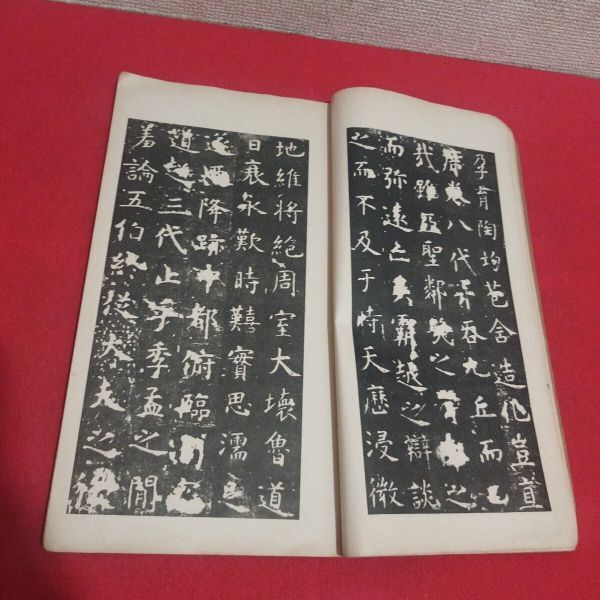 乃孕育陶均苞含造化豈直
席卷八代并吞九丘而已
哉雖亞聖鄰幾之之
而弥遠亡吳霸越之辯談
之而不及于時天歷浸微
地維將絕周室大壞魯道
日衰永歎時囏實思濡
遂迺降跡中都俯臨
道超三代止乎季孟之間
羞論五伯終從大夫之後